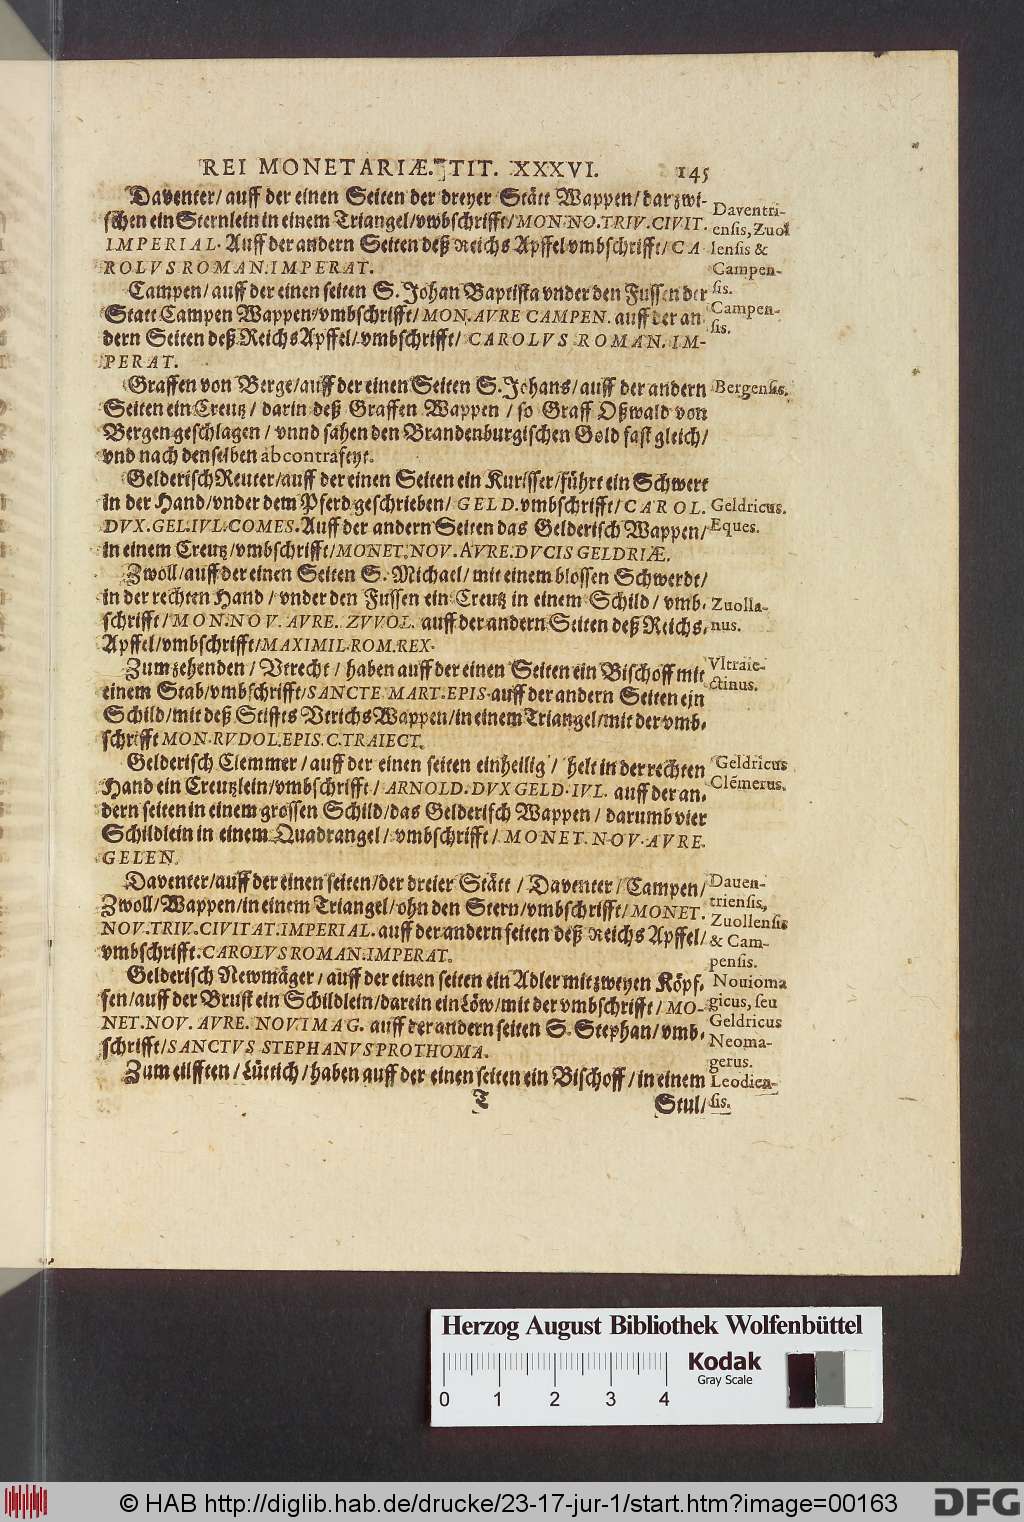 REI MONETARIÆ. TIT. XXXVI. 145
Daventer/ auff der einen Seiten der dreyer Stätt Wappen/ darzwi-
schen ein Sternlein in einem Triangel/ vmbschrifft/ MON. NO. TRIV. CIVIT.
IMPERIAL. Auff der andern Seiten deß Reichs Apffel vmbschrifft/ CA
ROLVS ROMAN. IMPERAT.
Daventri-
ensis, Zuol
lensis &
Campen-
sis.
Campen/ auff der einen seiten S. Johan Baptista vnder den Fussen der
Statt Campen Wappen/ vmbschrifft/ MON. AVRE CAMPEN. auff der an
dern Seiten deß Reichs Apffel/ vmbschrifft/ CAROLVS ROMAN. IM-
PERAT.
Campen-
sis.
Graffen von Berge/ auff der einen Seiten S. Johans/ auff der andern
Seiten ein Creutz/ darin deß Graffen Wappen/ so Graff Oßwald von
Bergen geschlagen/ vnnd sahen den Brandenburgischen Gold fast gleich/
vnd nach denselben abcontrafeyt.
Bergensis.
Gelderisch Reuter/ auff der einen Seiten ein Kurisser/ führt ein Schwert
in der Hand/ vnder dem Pferd geschrieben/ GELD. vmbschrifft/ CAROL.
DVX. GEL. IVL. COMES. Auff der andern Seiten das Gelderisch Wappen/
in einem Creutz/ vmbschrifft/ MONET. NOV. AVRE. DVCIS GELDRIÆ.
Geldricus.
Eques.
Zwoll/ auff der einen Seiten S. Michael/ mit einem blossen Schwerdt/
in der rechten Hand/ vnder den Fussen ein Creutz in einem Schild/ vmb-
schrifft/ MON. NOV. AVRE. ZVVOL. auff der andern Seiten deß Reichs,
Apffel/ vmbschrifft/ MAXIMIL. ROM. REX.
Zuolla-
nus.
Zum zehenden/ Vtrecht/ haben auff der einen Seiten ein Bischoff mit
einem Stab/ vmbschrifft/ SANCTE MART. EPIS. auff der andern Seiten ein
Schild/ mit deß Stiffts Vtrichs Wappen/ in einem Triangel/ mit der vmb-
schrifft MON. RVDOL. EPIS. C. TRAIECT.
Vltraie-
ctinus.
Gelderisch Clemmer/ auff der einen seiten ein heilig/ helt in der rechten
Hand ein Creutzlein/ vmbschrifft/ ARNOLD. DVX GELD. IVL. auff der an-
dern seiten in einem grossen Schild/ das Gelderisch Wappen/ darumb vier
Schildlein in einem Quadrangel/ vmbschrifft/ MONET. NOV. AVRE.
GELEN.
Geldricus
Clēmerus.
Daventer/ auff der einen seiten/ der dreier Stätt/ Daventer/ Campen/
Zwoll/ Wappen/ in einem Triangel/ ohn den Stern/ vmbschrifft/ MONET.
NOV. TRIV. CIVITAT. IMPERIAL. auff der andern seiten deß Reichs Apffel/
vmbschrifft. CAROLVS ROMAN. IMPERAT.
Dauen-
triensis,
Zuollensis
& Cam-
pensis.
Gelderisch Newmäger/ auff der einen seiten ein Adler mit zweyen Köpf-
fen/ auff der Brust ein Schildlein/ darein ein Löw/ mit der vmbschrifft/ MO-
NET. NOV. AVRE. NOVIMAG. auff der andern seiten S. Stephan/ vmb-
schrifft/ SANCTVS STEPHANVS PROTHOMA.
Nouioma
gicus, seu
Geldricus
Neoma-
gerus.
Zum eilfften/ Lüttich/ haben auff der einen seiten ein Bischoff/ in einem
Leodien-
sis.
T Stul/
Herzog August Bibliothek Wolfenbüttel
0 1 2 3 4
Kodak
Gray Scale
© HAB http://diglib.hab.de/drucke/23-17-jur-1/start.htm?image=00163
DFG